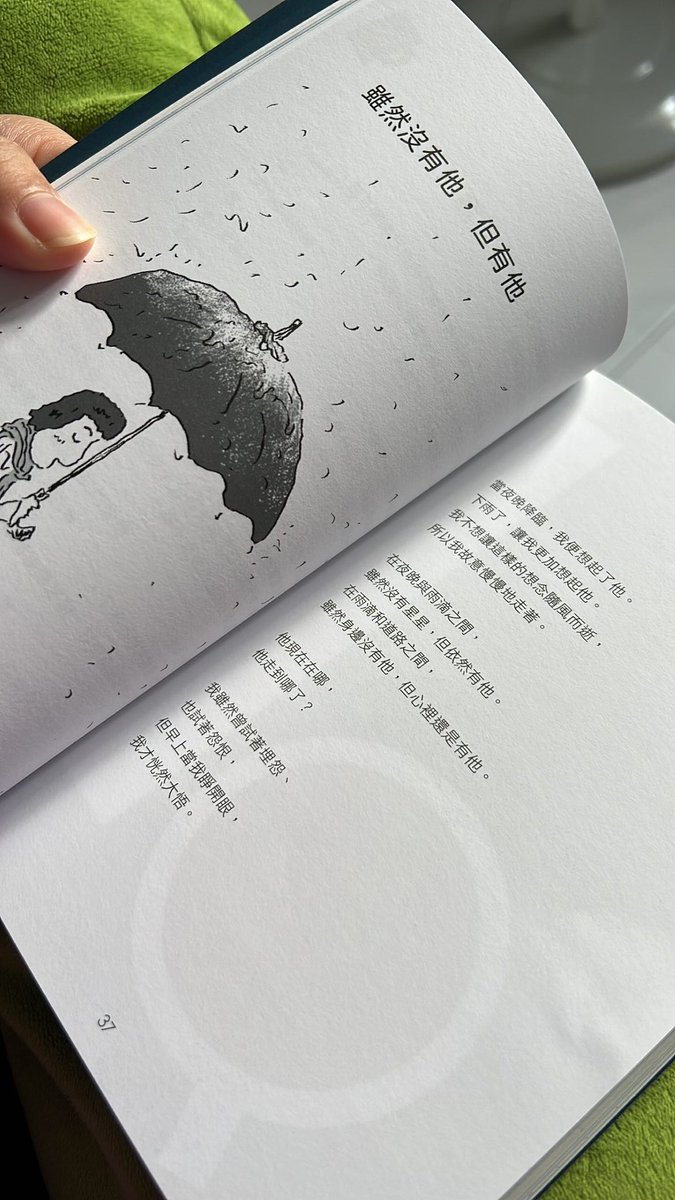 雖然沒有他，但有他
當夜晚降臨，我便想起了他。
下雨了，讓我更加想起他。
我不想讓這樣的想念隨風而逝，
所以我故意慢慢地走著。
在夜晚與雨滴之間，
雖然沒有星星，但依然有他。
在雨滴和道路之間，
雖然身邊沒有他，但心裡還是有他。
他現在在哪，
他走到哪了？
我雖然曾試著埋怨、
也試著怨恨，
但早上當我睜開眼，
我才恍然大悟。
37